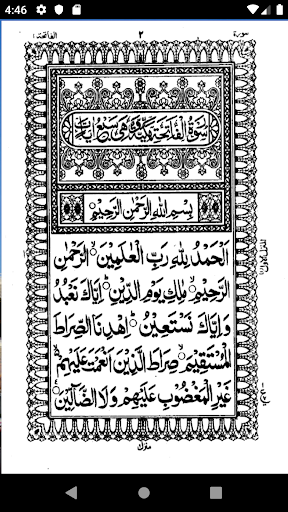 4:46
سورة ٢ الفاتحة ١
سورة الفاتحة مكية وهي سبع ايات
بِسْمِ اللهِ الرَّحْمٰنِ الرَّحِيْمِ
اَلْحَمْدُ لِلّٰهِ رَبِّ الْعٰلَمِيْنَ الرَّحْمٰنِ
الرَّحِيْمِ مٰلِكِ يَوْمِ الدِّيْنِ اِيَّاكَ نَعْبُدُ
وَاِيَّاكَ نَسْتَعِيْنُ اِهْدِنَا الصِّرَاطَ
الْمُسْتَقِيْمَ صِرَاطَ الَّذِيْنَ اَنْعَمْتَ عَلَيْهِمْ
غَيْرِ الْمَغْضُوْبِ عَلَيْهِمْ وَلَا الضَّآلِّيْنَ
منزل